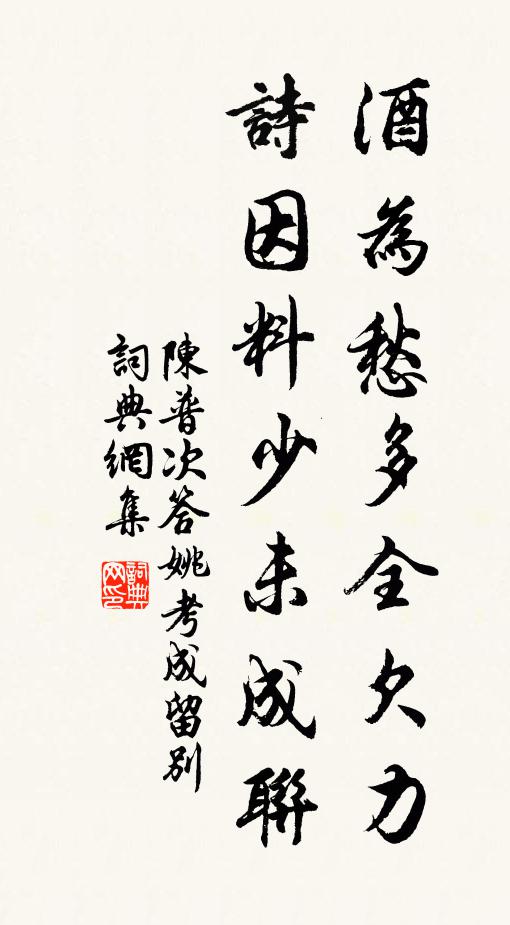 酒為愁多全欠力
詩因料少未成聯
陳普次答姚考成留別
詞典網集
詞典网印